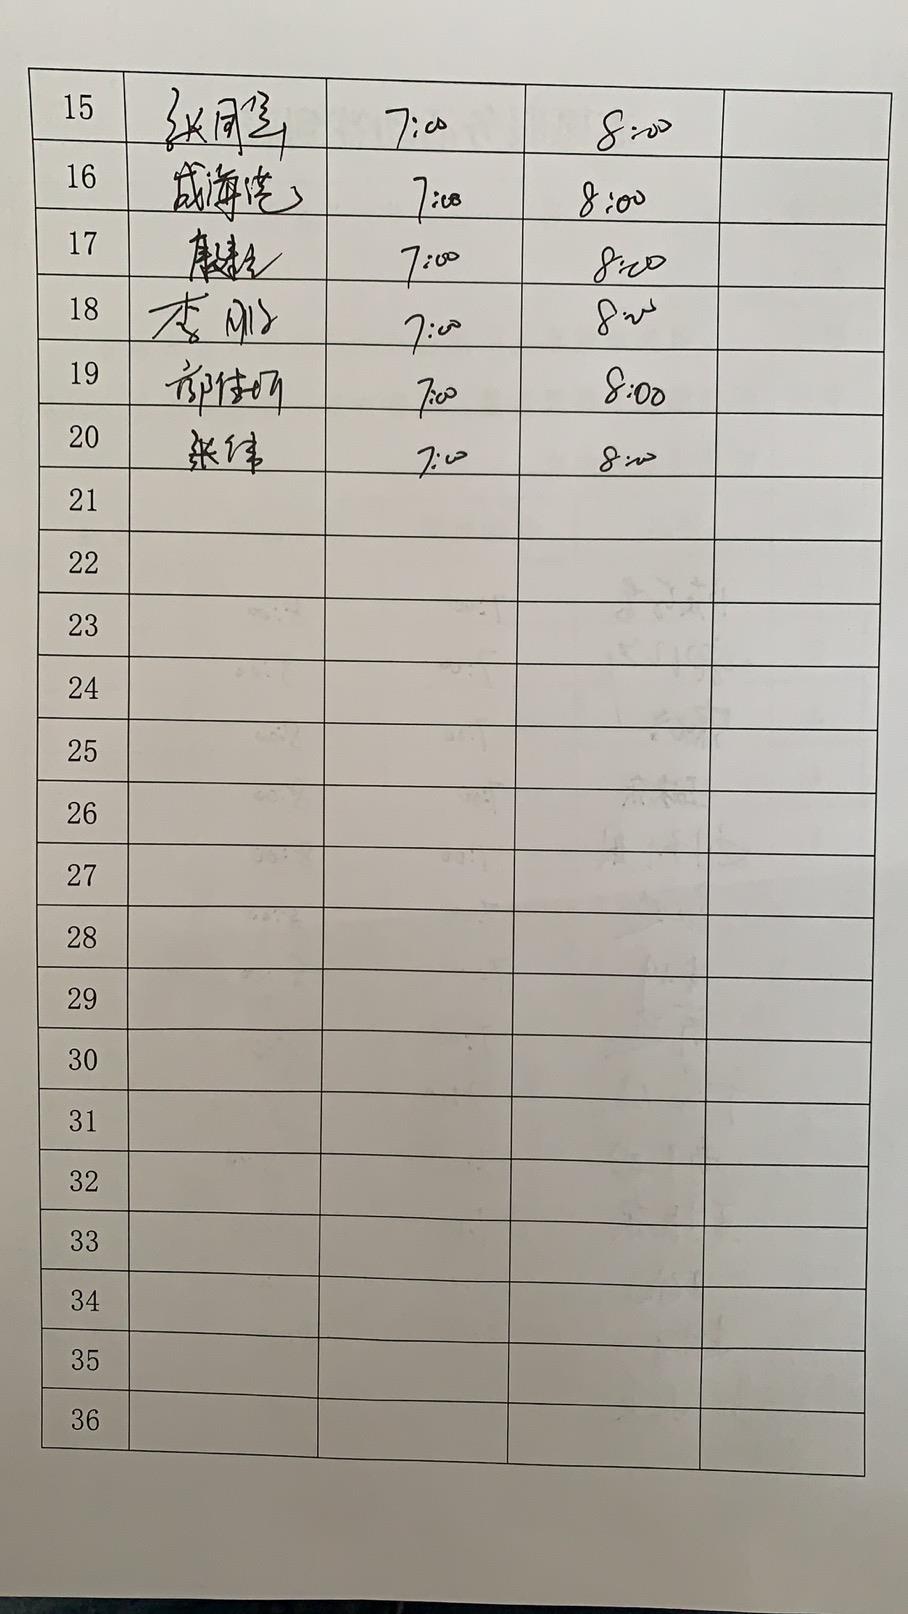 15 张同信 7:00 8:00
16 成海港 7:00 8:00
17 康建 7:00 8:00
18 李刚 7:00 8:00
19 郭佳昕 7:00 8:00
20 张伟 7:00 8:00
21
22
23
24
25
26
27
28
29
30
31
32
33
34
35
36